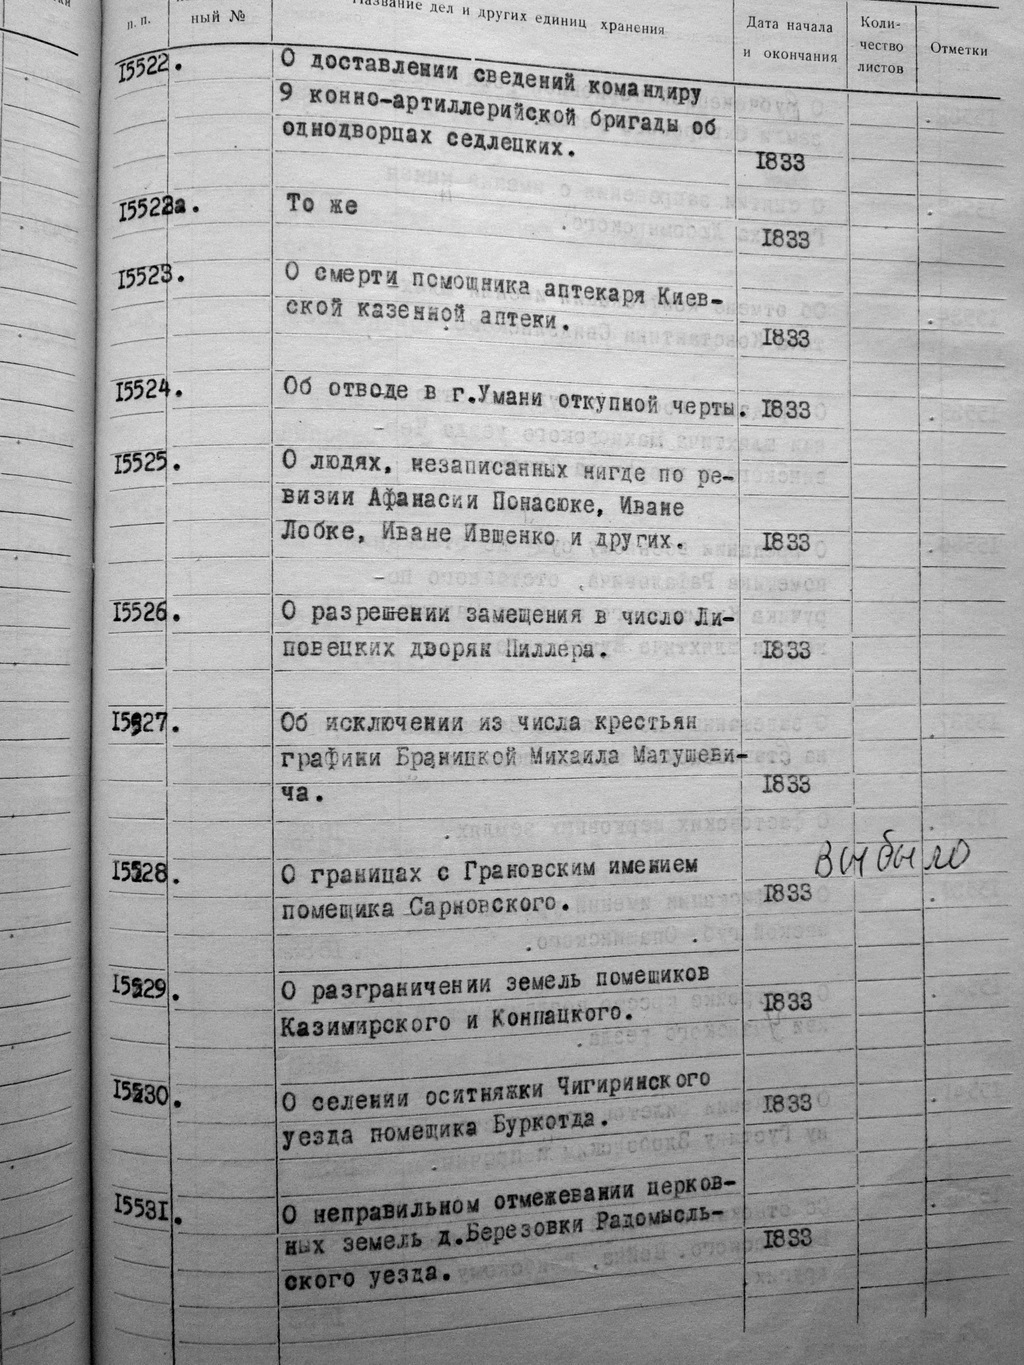 п. п.
ный №
Название дел и других единиц хранения
Дата начала
и окончания
Коли-
чество
листов
Отметки
15522.
О доставлении сведений командиру
9 конно-артиллерийской бригады об
однодворцах седлецких.
1833
15522а.
То же
1833
15523.
О смерти помощника аптекаря Киев-
ской казенной аптеки.
1833
15524.
Об отводе в г.Умани откупной черты.
1833
15525.
О людях, незаписанных нигде по ре-
визии Афанасии Понасюке, Иване
Лобке, Иване Ивщенко и других.
1833
15526.
О разрешении замещения в число Ли-
повецких дворян Пиллера.
1833
15527.
Об исключении из числа крестьян
графини Браницкой Михаила Матушеви-
ча.
1833
15528.
О границах с Грановским имением
помещика Сарновского.
1833
выбыло
15529.
О разграничении земель помещиков
Казимирского и Конпацкого.
1833
15530.
О селении оситняжки Чигиринского
уезда помещика Буркотда.
1833
15531.
О неправильном отмежевании церков-
ных земель д.Березовки Радомысль-
ского уезда.
1833